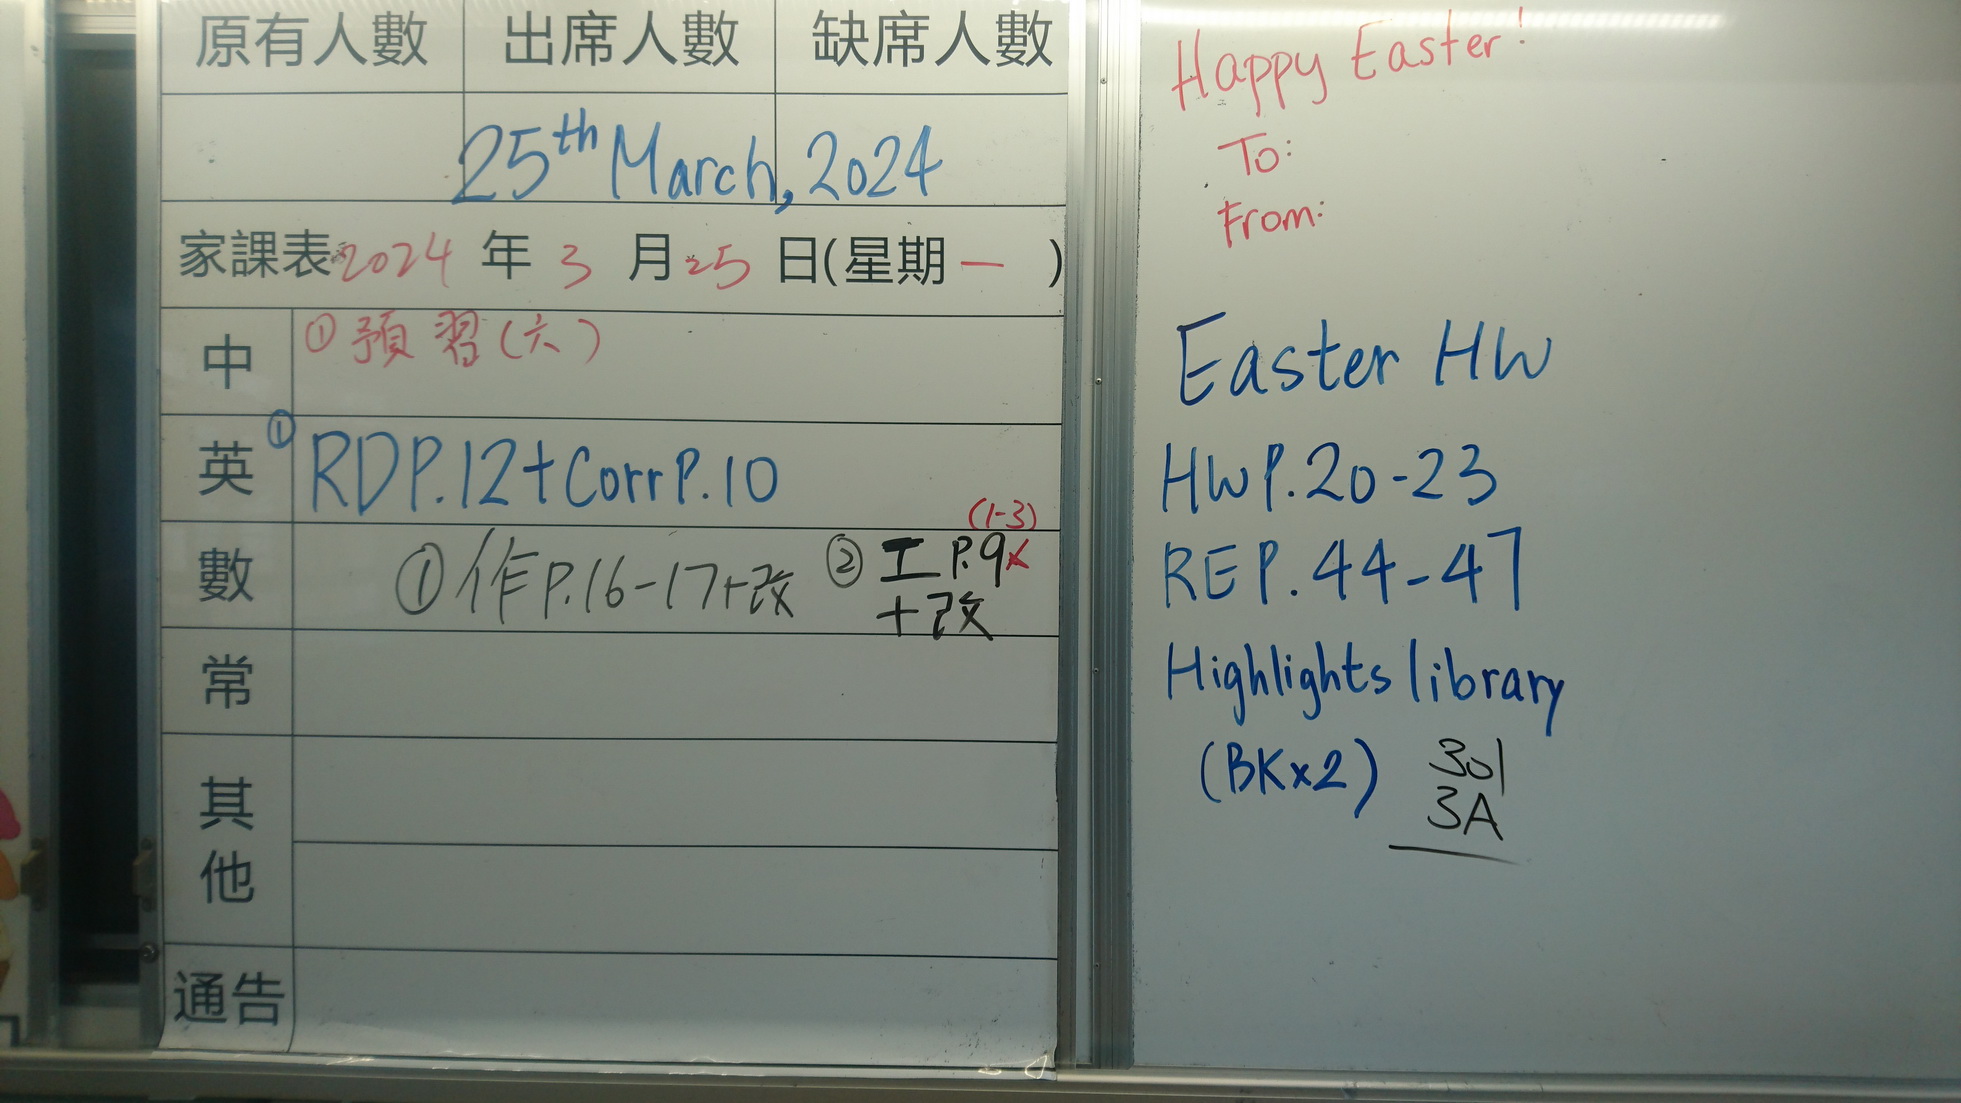 原有人數 出席人數 缺席人數
25th March, 2024
家課表 2024 年 3 月 25 日(星期 一 )
中 ① 預習(六)
英 ① RD P.12 + Corr P.10
(1-3)
數 ① 作 P.16-17+改 ② 工 P.9 x
+改
常
其他
通告
Happy Easter!
To:
From:
Easter HW
HW P.20-23
RE P.44-47
Highlights library
(BK x2) 301
3A